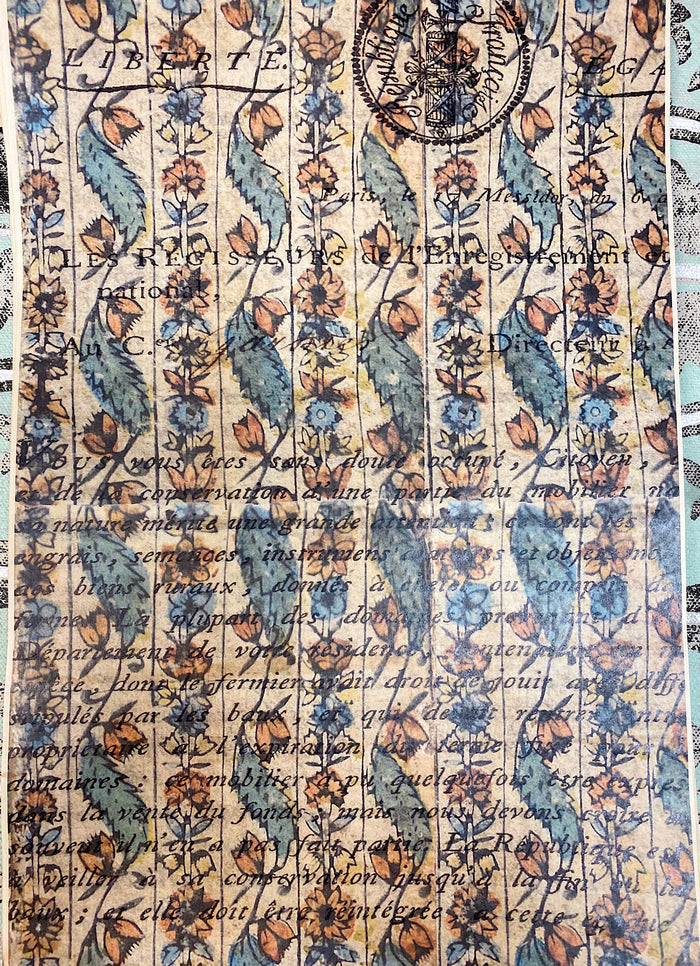 République Française
LIBERTÉ. EGA
Paris, le 17 Messidor, an 6 d
LES REGISSEURS de l'Enregistrement et
national,
Au C.en Directeur
Vous vous êtes sans doute occupé, Citoyen,
et de la conservation d'une partie du mobilier na
sa nature mérite une grande attention; ce sont les
engrais, semences, instrumens aratoires et objets
des biens ruraux, donnés à cheptel ou compris da
ferme. La plupart des domaines provenant d
Département de votre résidence, contenaient
espèce, dont le fermier avait droit de jouir avec diff
stipulés par les baux, et qui devait rentrer entre
propriétaire à l'expiration du terme fixé pour
domaines: ce mobilier a pu quelquefois être expres
dans la vente du fonds, mais nous devons croire
souvent il n'en a pas fait partie. La République es
à veiller à sa conservation jusqu'à la fin ou
baux; et elle doit être réintégrée, à cette époque